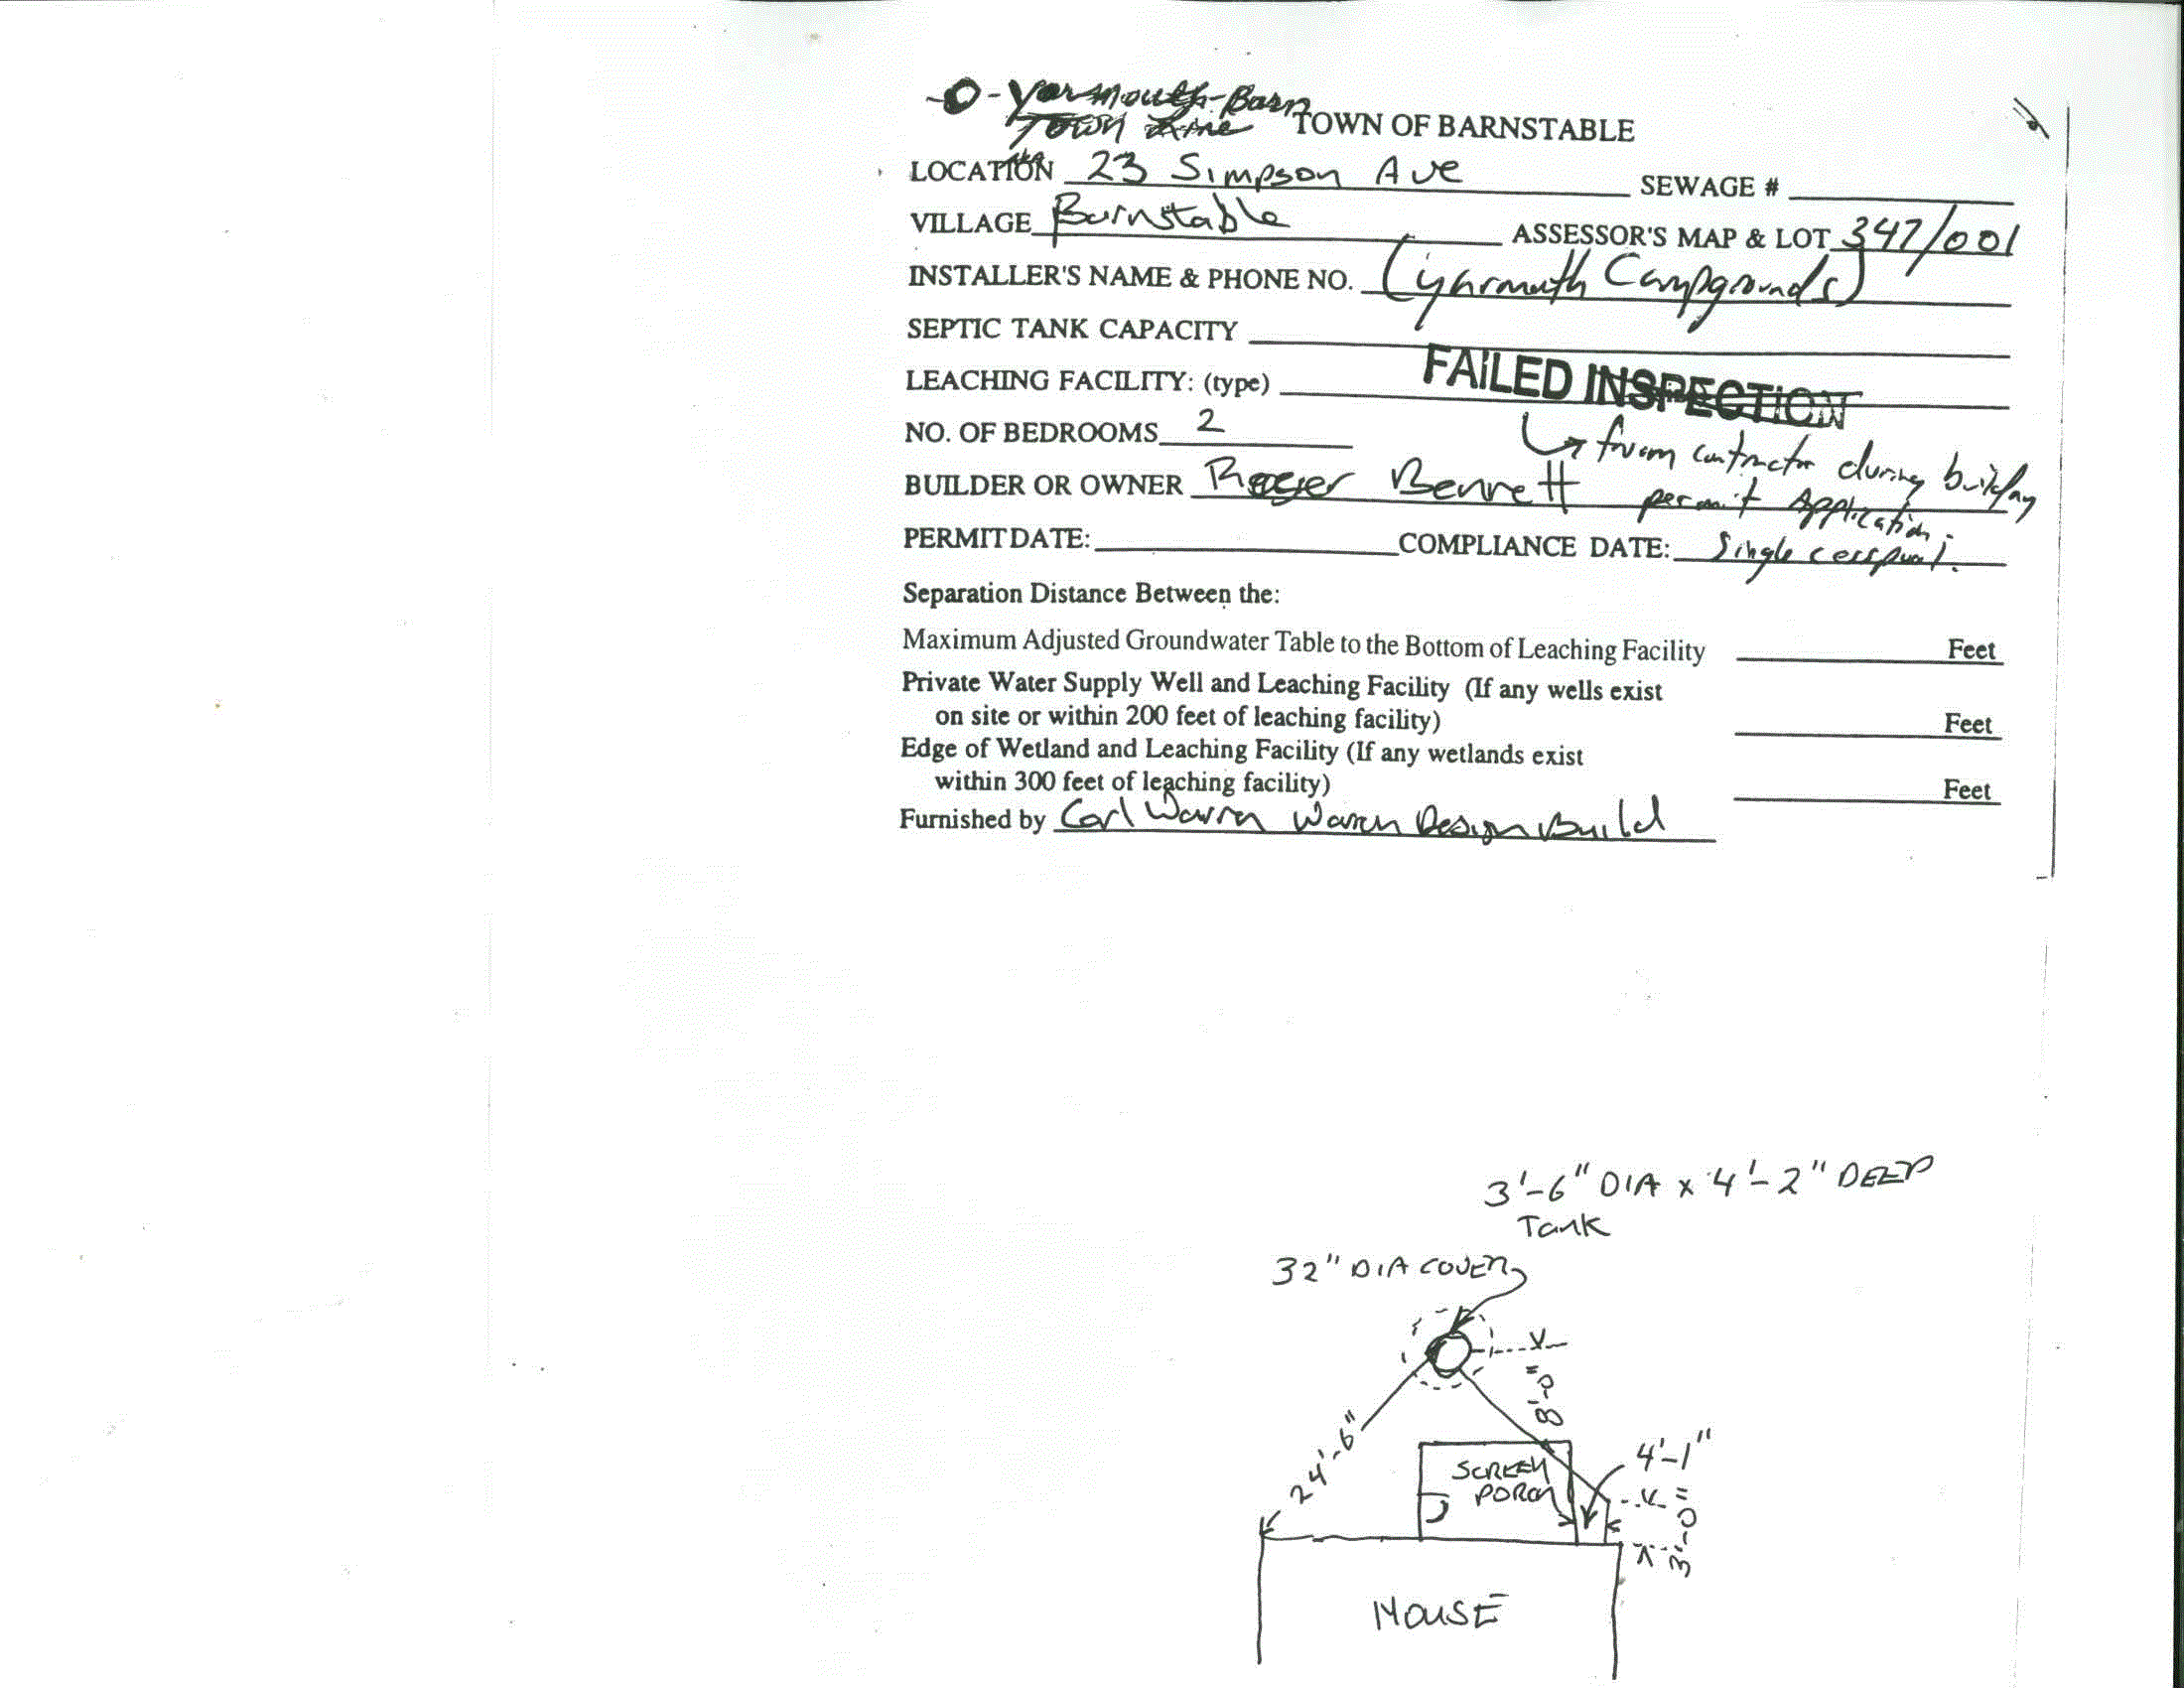 -0- Yarmouth-Barn
Town Line TOWN OF BARNSTABLE
LOCATION 23 Simpson Ave SEWAGE #
VILLAGE Barnstable ASSESSOR'S MAP & LOT 347/001
INSTALLER'S NAME & PHONE NO. (Yarmouth Campgrounds)
SEPTIC TANK CAPACITY
LEACHING FACILITY: (type) FAILED INSPECTION
NO. OF BEDROOMS 2
from contractor during building
BUILDER OR OWNER Roger Bennett permit Application.
PERMIT DATE: COMPLIANCE DATE: Single cesspool.
Separation Distance Between the:
Maximum Adjusted Groundwater Table to the Bottom of Leaching Facility Feet
Private Water Supply Well and Leaching Facility (If any wells exist
on site or within 200 feet of leaching facility) Feet
Edge of Wetland and Leaching Facility (If any wetlands exist
within 300 feet of leaching facility) Feet
Furnished by Carl Warren Warren Design Build
3'-6" DIA x 4'-2" DEEP
Tank
32" DIA COVER
8'-0"
24'-6"
4'-1"
SCREEN
PORCH
3'-0"
HOUSE